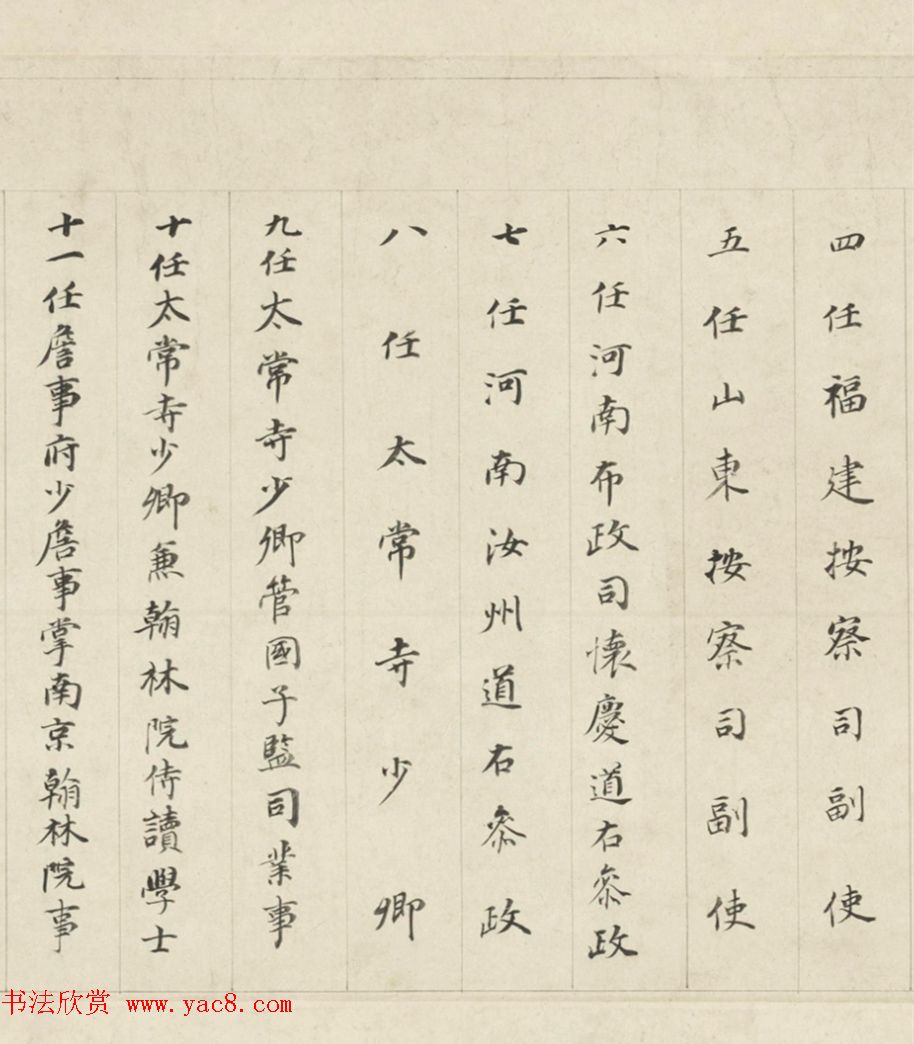 四任福建按察司副使
五任山東按察司副使
六任河南布政司懷慶道右叅政
七任河南汝州道右叅政
八任太常寺少卿
九任太常寺少卿管國子監司業事
十任太常寺少卿兼翰林院侍讀學士
十一任詹事府少詹事掌南京翰林院事
书法欣赏 www.yac8.com